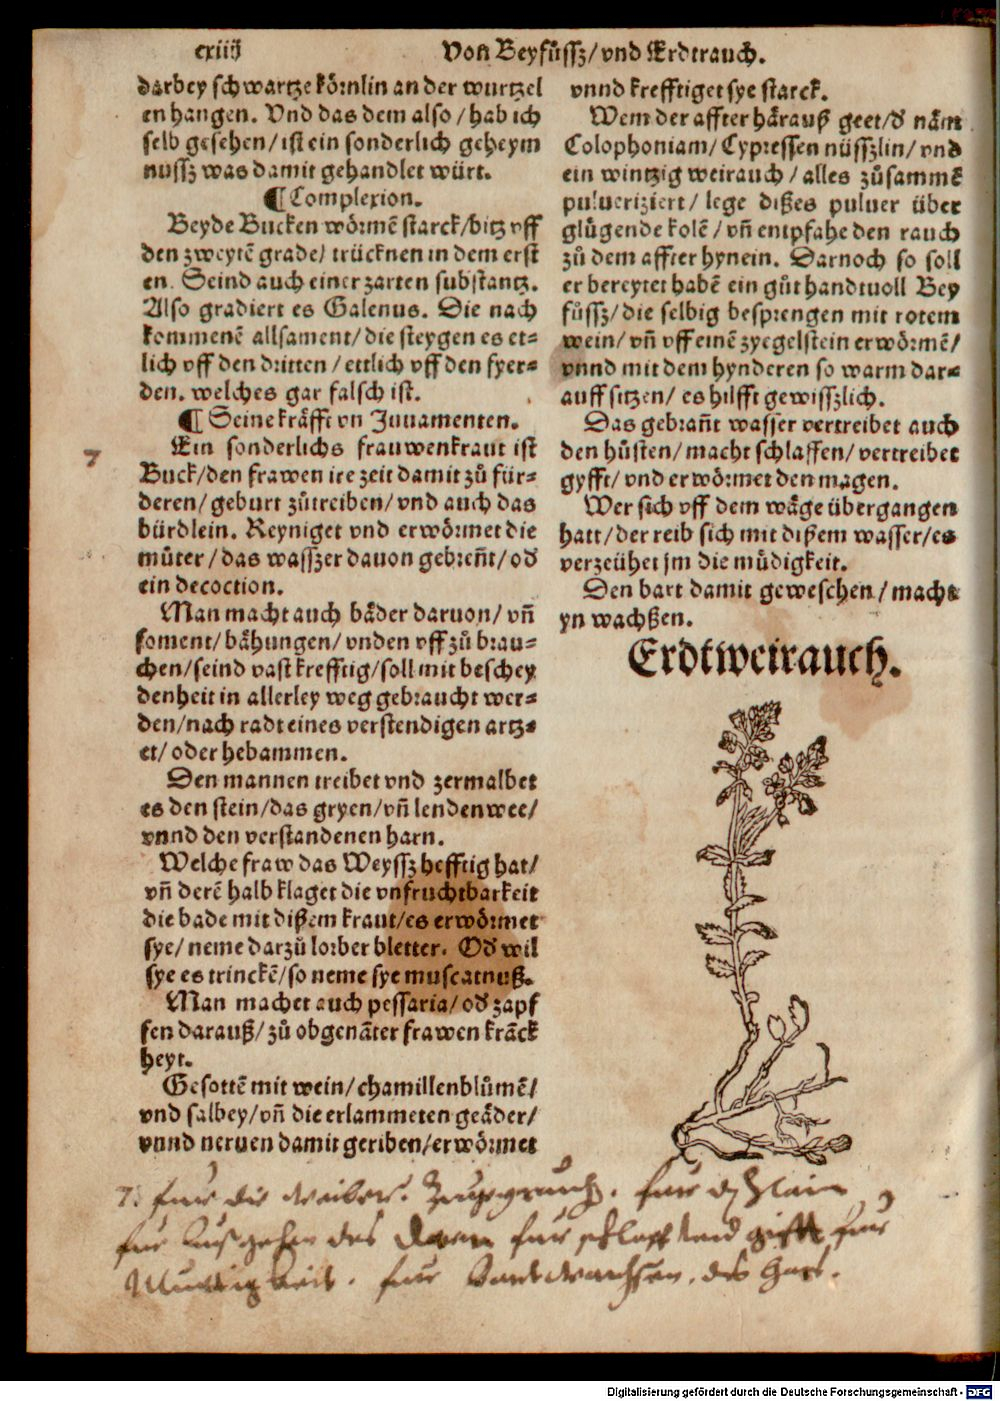 cxiiij
Von Beyfůssz/vnd Erdtrauch.
darbey schwartze körnlin an der wurtzel
en hangen. Vnd das dem also/hab ich
selb gesehen/ist ein sonderlich geheym
nussz was damit gehandlet würt.
¶ Complexion.
Beyde Bucken wörmẽ starck/bitz vff
den zweytẽ grade/trücknen in dem erst
en. Seind auch einer zarten substantz.
Also gradiert es Galenus. Die nach
kommenẽ allsament/die steygen es et=
lich vff den dritten/ettlich vff den fyer=
den. welches gar falsch ist.
¶ Seine kräfft vn Juuamenten.
7
Ein sonderlichs frauwenkraut ist
Buck/den frawen ire zeit damit zů für=
deren/geburt zůtreiben/vnd auch das
bürdlein. Reyniget vnd erwörmet die
můter/das wasszer dauon gebreñt/od
ein decoction.
Man macht auch bäder daruon/vñ
foment/bähungen/vnden vff zů brau=
chen/seind vast krefftig/soll mit beschey
denheit in allerley weg gebraucht wer=
den/nach radt eines verstendigen artz=
et/oder hebammen.
Den mannen treibet vnd zermalbet
es den stein/das gryen/vñ lendenwee/
vnnd den verstandenen harn.
Welche fraw das Weyssz hefftig hat/
vñ derẽ halb klaget die vnfruchtbarkeit
die bade mit dißem kraut/es erwörmet
sye/neme darzů lorber bletter. Od wil
sye es trinckẽ/so neme sye muscatnuß.
Man machet auch pessaria/od zapf
fen darauß/zů obgenãter frawen kräck
heyt.
Gesottẽ mit wein/chamillenblůmẽ/
vnd salbey/vñ die erlammeten geäder/
vnnd neruen damit geriben/erwörmet
vnnd krefftiget sye starck.
Wem der affter häräuß geet/d näm
Colophoniam/Cypressen nüsszlin/vnd
ein wintzig weirauch/alles zůsammẽ
pulueriziert/lege dißes puluer über
glügende kolẽ/vñ entpfahe den rauch
zů dem affter hynein. Darnoch so soll
er bereytet habẽ ein gůt handtuoll Bey
fůssz/die selbig besprengen mit rotem
wein/vñ vff einẽ zyegelstein erwörmẽ/
vnnd mit dem hynderen so warm dar=
auff sitzen/es hilfft gewisszlich.
Das gebrañt wasser vertreibet auch
den hůsten/macht schlaffen/vertreibet
gyfft/vnd erwörmet den magen.
Wer sich vff dem wäge übergangen
hatt/der reib sich mit dißem wasser/es
verzeühet jm die můdigkeit.
Den bart damit geweschen/macht
yn wachßen.
Erdtweirauch.
7. fur die weiber. fur
fur außgehen des fur schlaff gifft fur
Mudigkeit. fur Bart wachsen. des
Digitalisierung gefördert durch die Deutsche Forschungsgemeinschaft - DFG